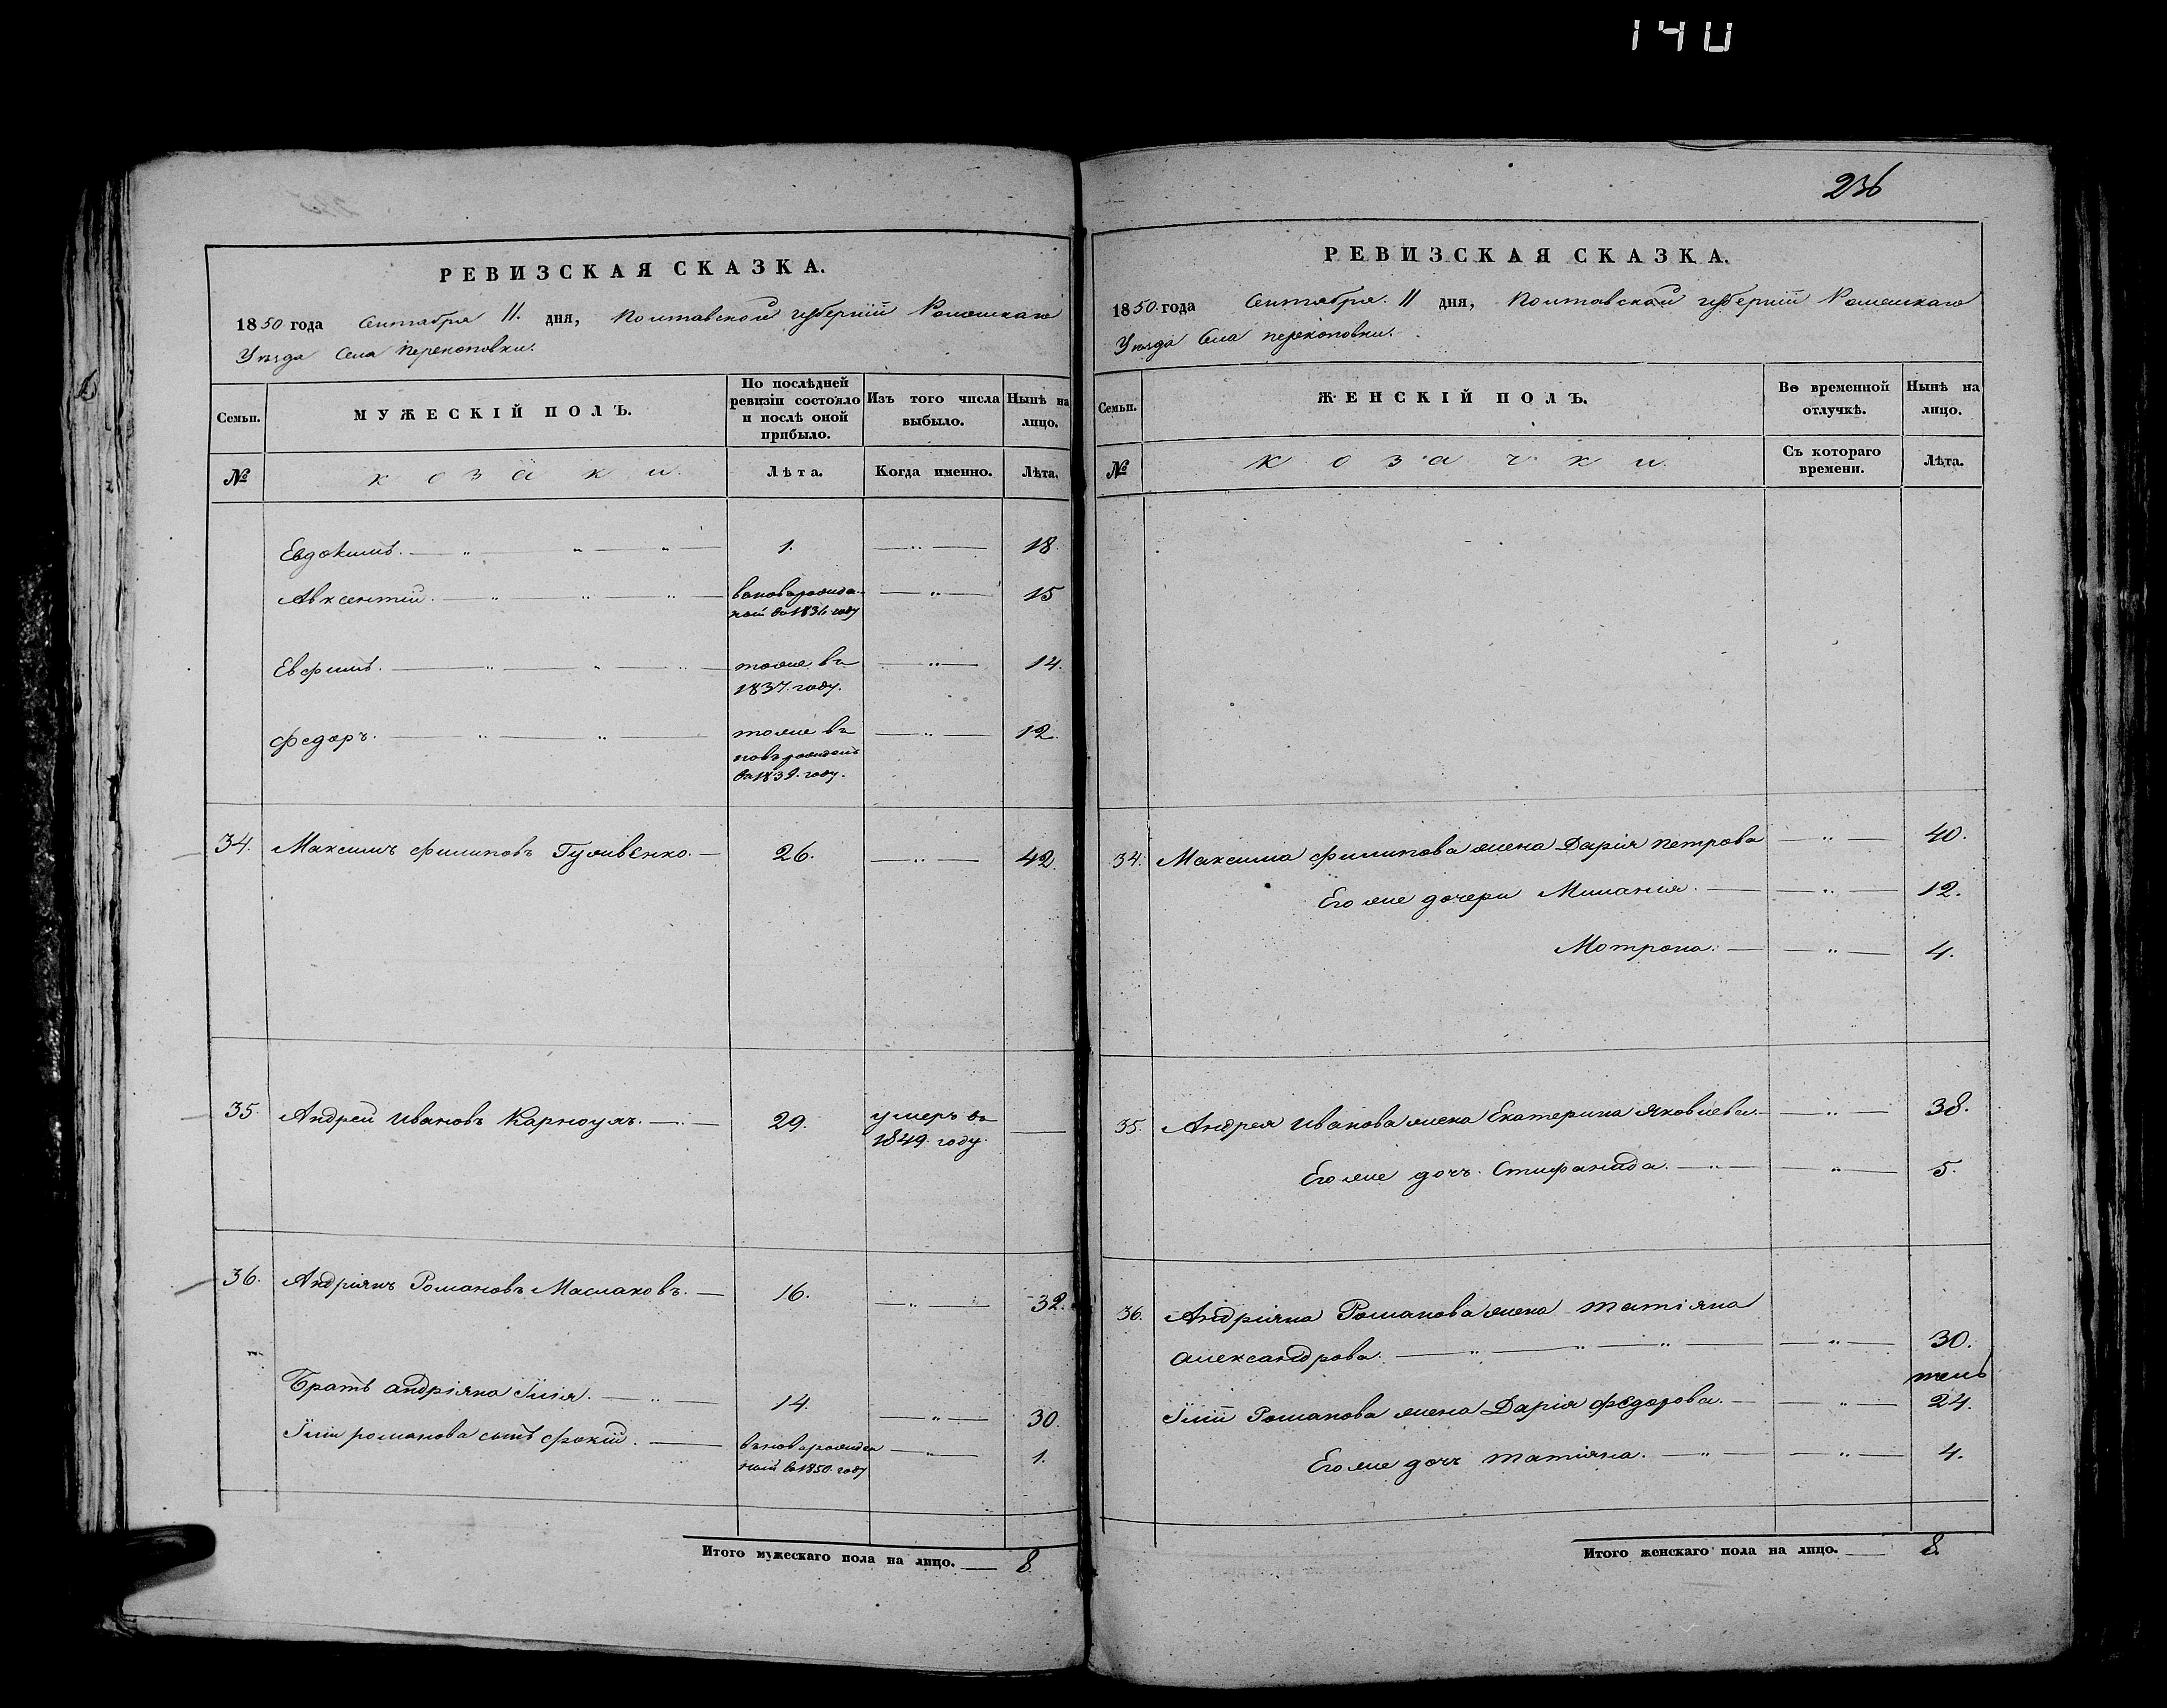 140
РЕВИЗСКАЯ СКАЗКА.
1850 года Сентября 11. дня, Полтавской губерніи Роменскаго
Уѣзда Села Перекоповки.
Семьи.
МУЖЕСКІЙ ПОЛЪ.
По послѣдней ревизіи состояло и послѣ оной прибыло.
Изъ того числа выбыло.
Нынѣ на лицо.
№
козаки.
Лѣта.
Когда именно.
Лѣта.
Евдокимъ. 1. 18.
Авксентій. 15
ной въ 1836 году
Евфимъ. тоже въ 14.
1837. году.
Федоръ. тоже въ 12.
году.
34. Максимъ Филиповъ 26. 42.
35. Андрей Ивановъ Карноухъ. 29. умеръ въ
1849. году.
36. Андріянъ Романовъ Маслаковъ. 16. 32.
Братъ Андріяна Ілія. 14. 30.
Іліи Романова сынъ Фокій. 1.
ной въ 1850 году
Итого мужескаго пола на лицо. 8.
236
РЕВИЗСКАЯ СКАЗКА.
1850. года Сентября. 11 дня, Полтавской губерніи Роменскаго
Уѣзда Села Перекоповки.
Семьи.
ЖЕНСКІЙ ПОЛЪ.
Во временной отлучкѣ.
Нынѣ на лицо.
№
козачки.
Съ котораго времени.
Лѣта.
34. Максима Филипова жена Дарія Петрова 40.
Его же дочери Миланія. 12.
Мотрона. 4.
35. Андрея Иванова жена Екатерина Яковлева. 38.
Его же дочь Стифанида. 5.
36. Андріяна Романова жена Татіяна
Александрова. 30.
Іліи Романова жена Дарія Федорова. 24.
Его же дочь Татіяна. 4.
Итого женскаго пола на лицо. 8.